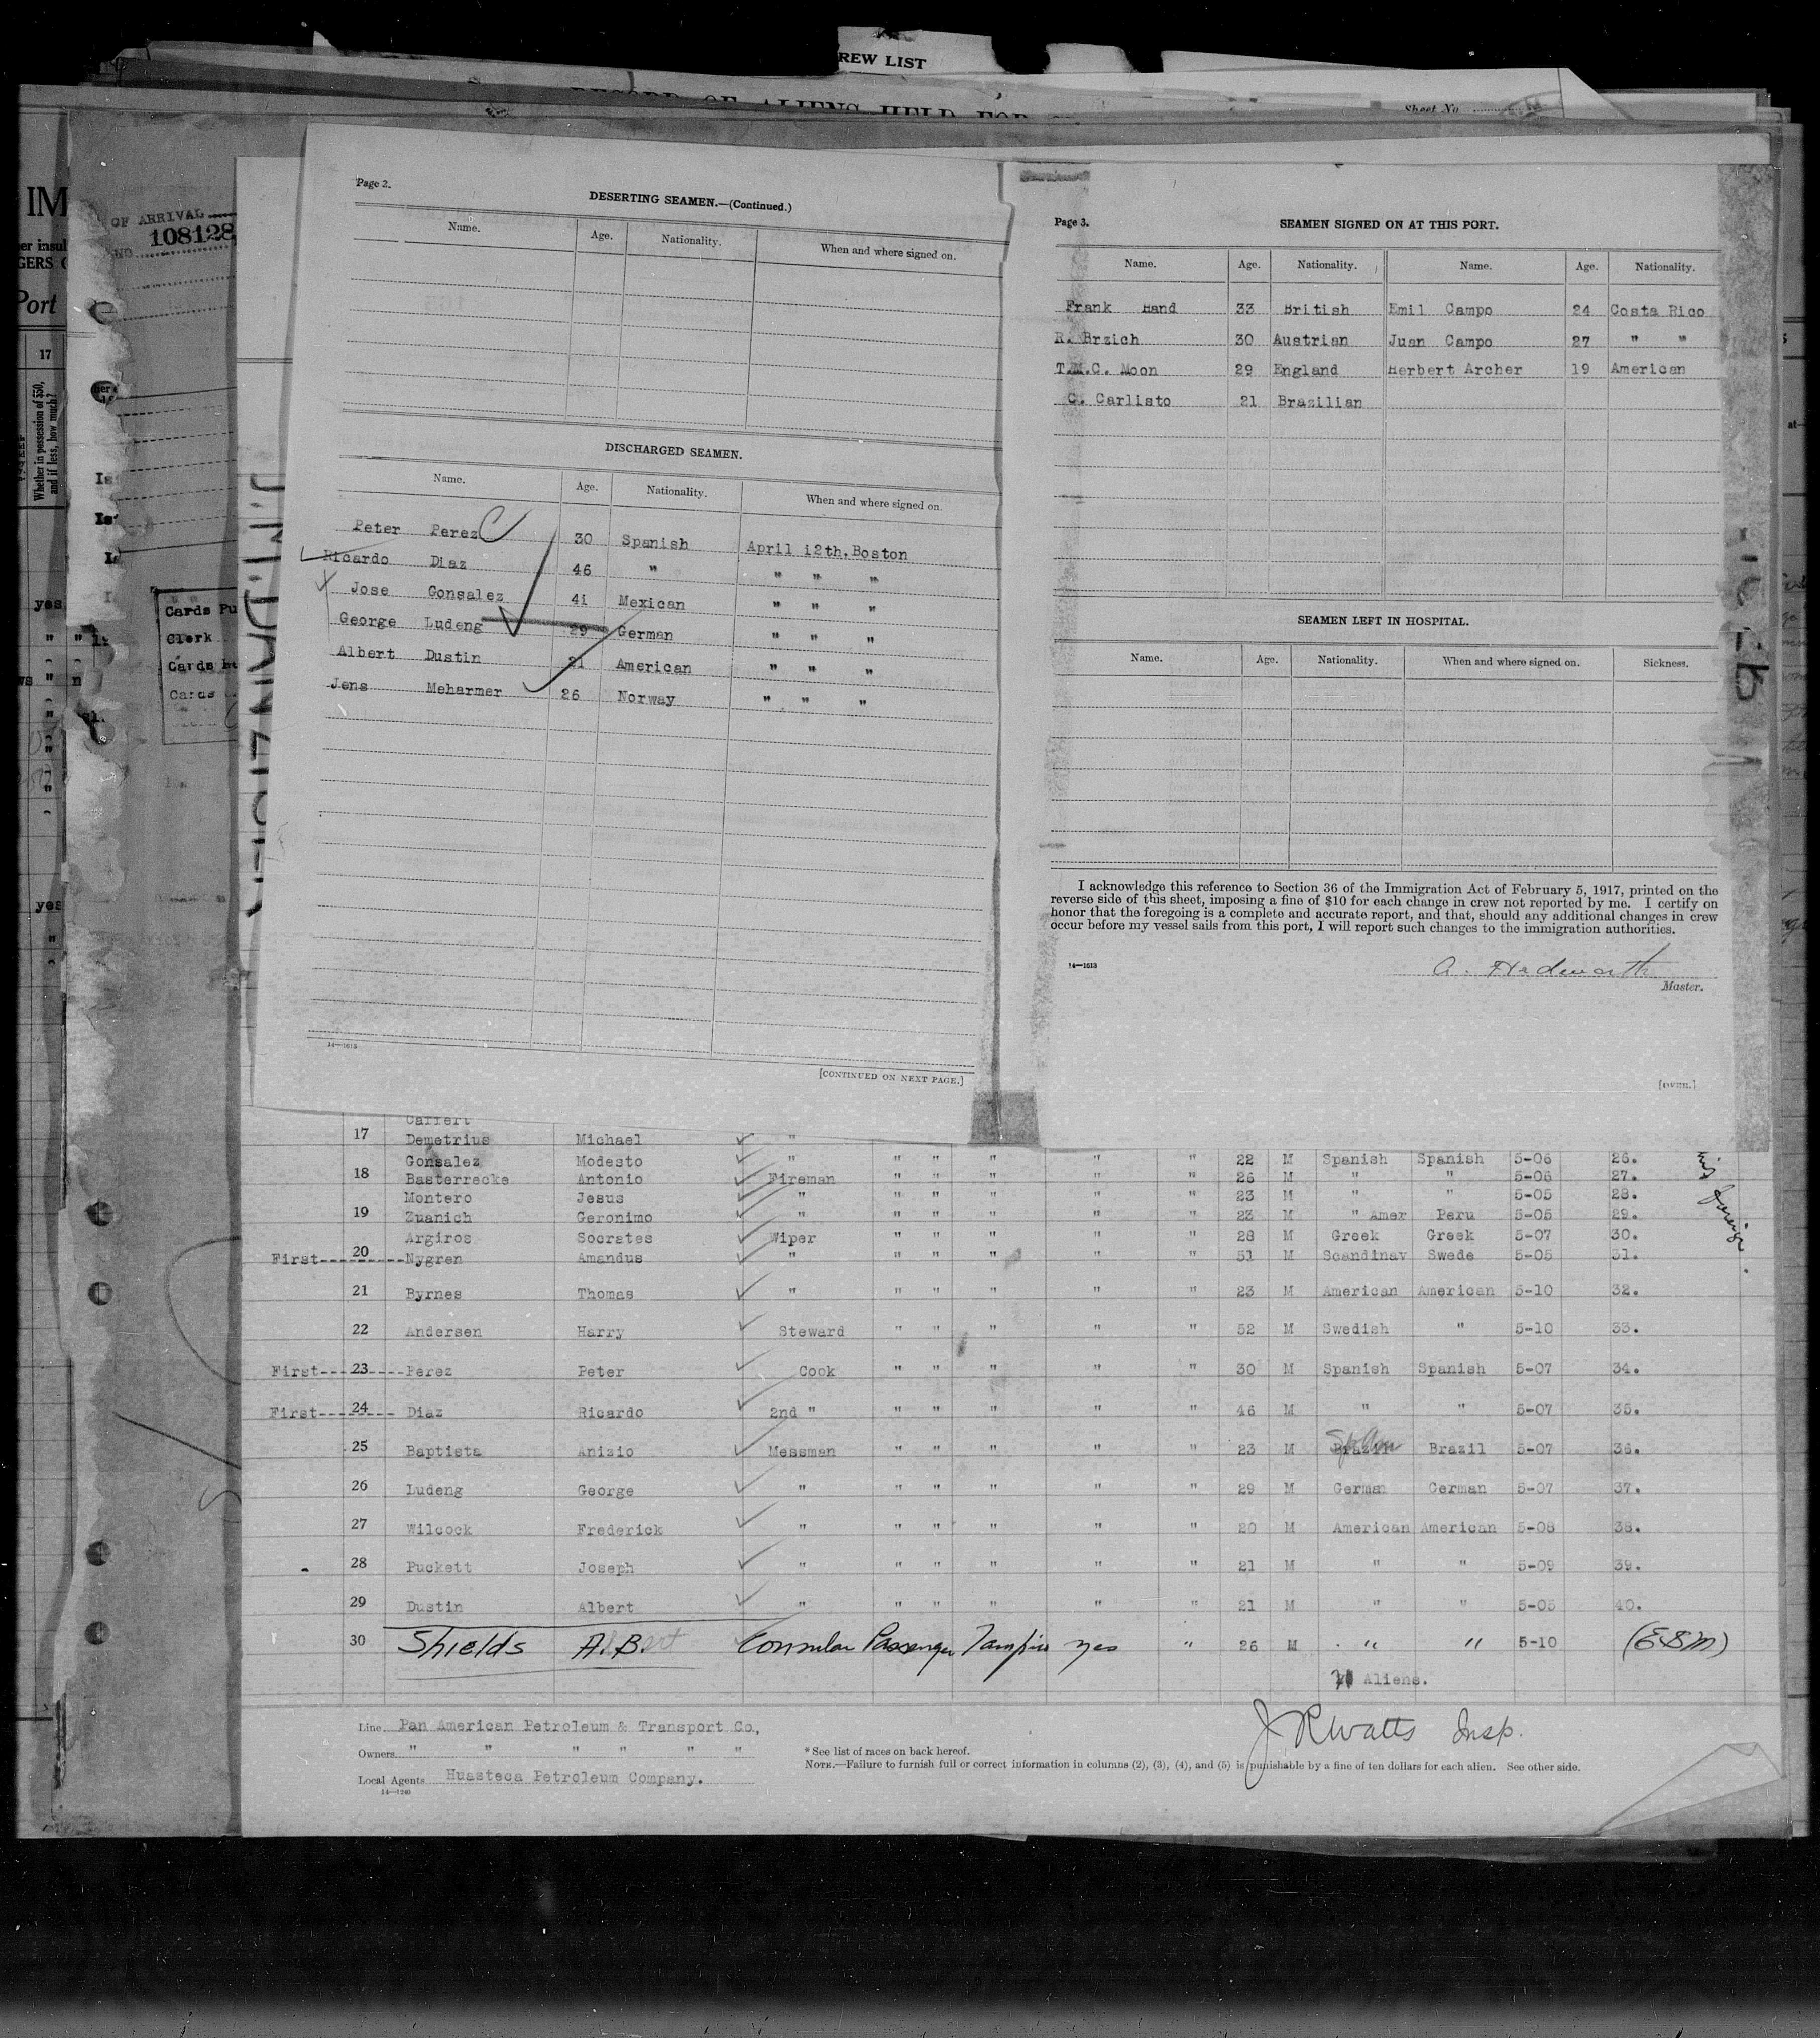 REW LIST
RECORD OF ALIENS HELD FOR
Sheet No.
IM
er insul
GERS
Port
17
Whether in possession of $50, and if less, how much?
OF ARRIVAL
NO 108128
Cards Pu
Clerk
Cards
Cards
yes
yes
Page 2.
DESERTING SEAMEN.—(Continued.)
Name. Age. Nationality. When and where signed on.
DISCHARGED SEAMEN.
Name. Age. Nationality. When and where signed on.
Peter Perez 30 Spanish April 12th, Boston
Ricardo Diaz 46 " " " "
Jose Gonsalez 41 Mexican " " "
George Ludeng 29 German " " "
Albert Dustin 21 American " " "
Jens Meharmer 26 Norway " " "
14—1613
[CONTINUED ON NEXT PAGE.]
Page 3.
SEAMEN SIGNED ON AT THIS PORT.
Name. Age. Nationality. Name. Age. Nationality.
Frank Hand 33 British Emil Campo 24 Costa Rico
R. Brzich 30 Austrian Juan Campo 27 " "
T.M.C. Moon 29 England Herbert Archer 19 American
C. Carlisto 21 Brazilian
SEAMEN LEFT IN HOSPITAL.
Name. Age. Nationality. When and where signed on. Sickness.
I acknowledge this reference to Section 36 of the Immigration Act of February 5, 1917, printed on the
reverse side of this sheet, imposing a fine of $10 for each change in crew not reported by me. I certify on
honor that the foregoing is a complete and accurate report, and that, should any additional changes in crew
occur before my vessel sails from this port, I will report such changes to the immigration authorities.
14—1613
A. Hedworth
Master.
[OVER.]
Caffert
17 Demetrius Michael "
Gonsalez Modesto " " " " " " 22 M Spanish Spanish 5-06 26.
18 Basterrecke Antonio Fireman " " " " " 26 M " " 5-06 27.
Montero Jesus " " " " " " 23 M " " 5-05 28.
19 Zuanich Geronimo " " " " " " 23 M " Amer Peru 5-05 29.
Argiros Socrates Wiper " " " " " 28 M Greek Greek 5-07 30.
First 20 Nygren Amandus " " " " " " 51 M Scandinav Swede 5-05 31.
21 Byrnes Thomas " " " " " " 23 M American American 5-10 32.
22 Andersen Harry Steward " " " " " 52 M Swedish " 5-10 33.
First 23 Perez Peter Cook " " " " " 30 M Spanish Spanish 5-07 34.
First 24 Diaz Ricardo 2nd " " " " " " 46 M " " 5-07 35.
25 Baptista Anizio Messman " " " " " 23 M Brazil Brazil 5-07 36.
26 Ludeng George " " " " " " 29 M German German 5-07 37.
27 Wilcock Frederick " " " " " " 20 M American American 5-08 38.
28 Puckett Joseph " " " " " " 21 M " " 5-09 39.
29 Dustin Albert " " " " " " 21 M " " 5-05 40.
30 Shields A. B. Consular Passenger Tampico yes " 26 M " " 5-10 (E&M)
Aliens.
J R Watts Insp.
Line Pan American Petroleum & Transport Co,
Owners " " " " " "
Local Agents Huasteca Petroleum Company.
14—1240
*See list of races on back hereof.
NOTE.—Failure to furnish full or correct information in columns (2), (3), (4), and (5) is punishable by a fine of ten dollars for each alien. See other side.